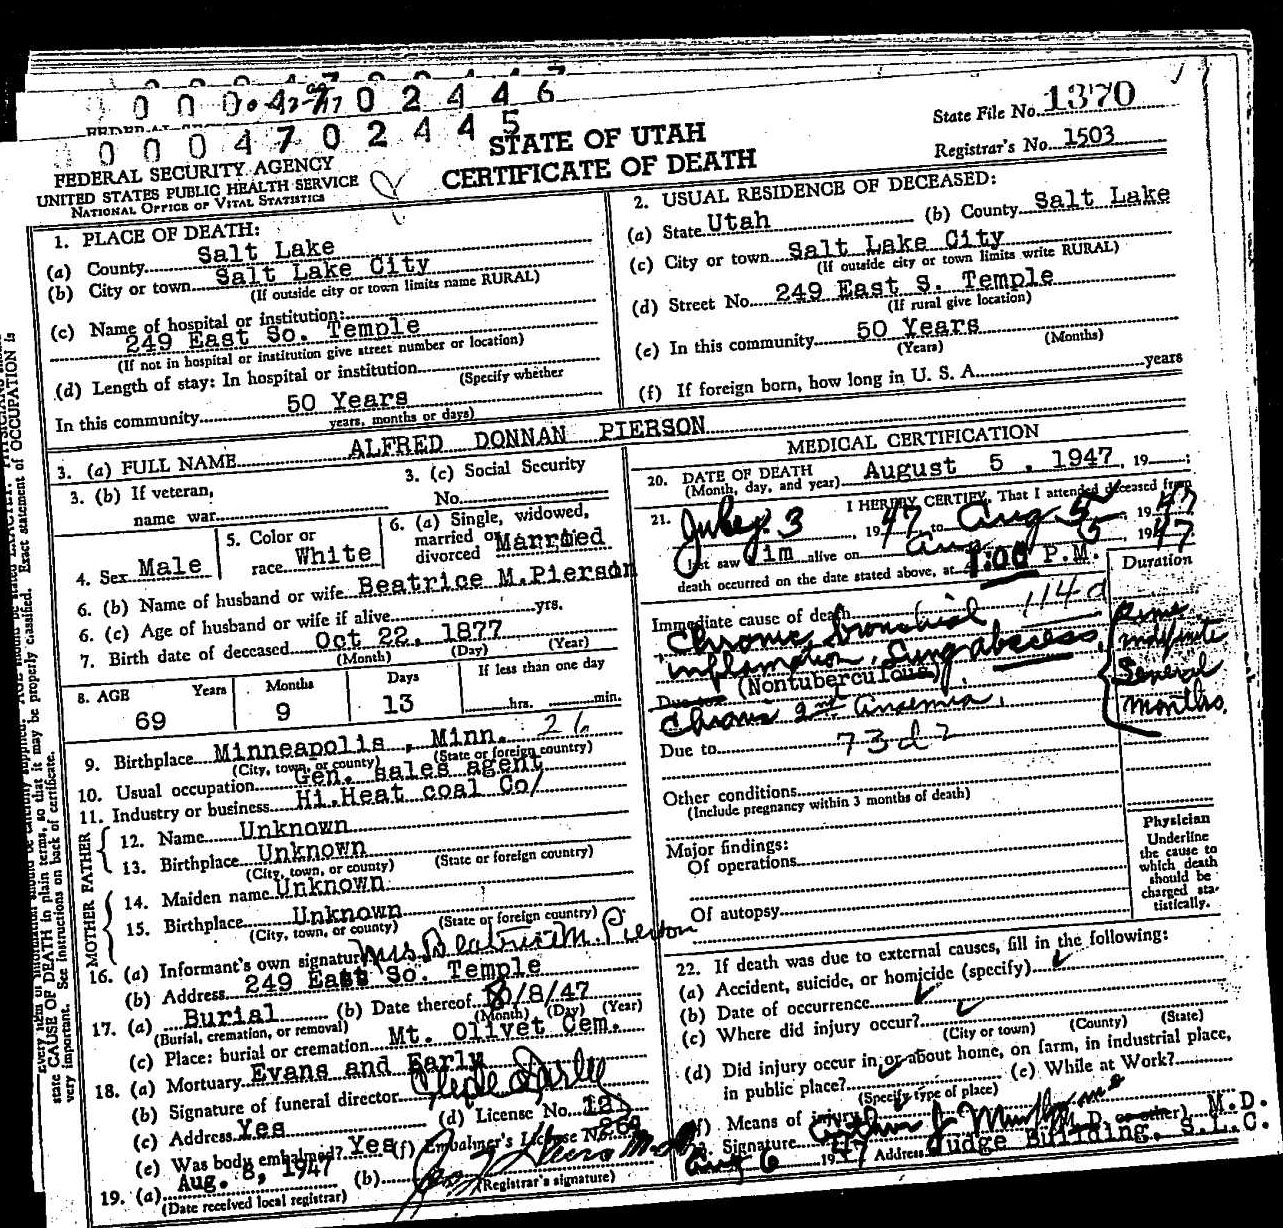 0 0 0 4 7 0 2 4 4 6
0 0 0 4 7 0 2 4 4 5
FEDERAL SECURITY AGENCY
UNITED STATES PUBLIC HEALTH SERVICE
NATIONAL OFFICE OF VITAL STATISTICS
STATE OF UTAH
CERTIFICATE OF DEATH
State File No. 1370
Registrar's No. 1503
1. PLACE OF DEATH:
(a) County Salt Lake
(b) City or town Salt Lake City
(If outside city or town limits name RURAL)
(c) Name of hospital or institution:
249 East So. Temple
(If not in hospital or institution give street number or location)
(d) Length of stay: In hospital or institution
(Specify whether
In this community 50 Years
years, months or days)
2. USUAL RESIDENCE OF DECEASED:
(a) State Utah (b) County Salt Lake
(c) City or town Salt Lake City
(If outside city or town limits write RURAL)
(d) Street No. 249 East S. Temple
(If rural give location)
(e) In this community 50 Years
(Years) (Months)
(f) If foreign born, how long in U. S. A. years
3. (a) FULL NAME ALFRED DONNAN PIERSON
3. (b) If veteran,
name war
3. (c) Social Security
No.
4. Sex Male
5. Color or
race White
6. (a) Single, widowed,
married or
divorced Married
6. (b) Name of husband or wife Beatrice M.Pierson
6. (c) Age of husband or wife if alive yrs.
7. Birth date of deceased Oct 22, 1877
(Month) (Day) (Year)
8. AGE Years Months Days If less than one day
69 9 13 hrs. min.
9. Birthplace Minneapolis , Minn. 26
(City, town, or county) (State or foreign country)
10. Usual occupation Gen. sales agent
11. Industry or business Hi.Heat coal Co/
FATHER
12. Name Unknown
13. Birthplace Unknown
(City, town, or county) (State or foreign country)
MOTHER
14. Maiden name Unknown
15. Birthplace Unknown
(City, town, or county) (State or foreign country)
16. (a) Informant's own signature Mrs Beatrice M. Pierson
(b) Address 249 East So. Temple
17. (a) Burial (b) Date thereof 8/8/47
(Burial, cremation, or removal) (Month) (Day) (Year)
(c) Place: burial or cremation Mt. Olivet Cem.
18. (a) Mortuary Evans and Early
(b) Signature of funeral director
(c) Address Yes (d) License No.
(e) Was body embalmed? Yes (f) Embalmer's License No.
19. (a) Aug. 8, 1947 (b)
(Date received local registrar) (Registrar's signature)
MEDICAL CERTIFICATION
20. DATE OF DEATH August 5 , 1947 , 19 :
(Month, day, and year)
21. I HEREBY CERTIFY, That I attended deceased from
July 3 , 1947 to Aug 5 , 1947
last saw im alive on Aug 5 , 1947
death occurred on the date stated above, at 1:00 P.M.
Duration
Immediate cause of death 114d
Chronic bronchial
inflamation, Lung abscess,
Due to (Nontuberculous)
Chronic 2nd Anaemia.
indefinite
Several
months.
Due to
Other conditions
(Include pregnancy within 3 months of death)
Major findings:
Of operations
Of autopsy
Physician
Underline
the cause to
which death
should be
charged sta-
tistically.
22. If death was due to external causes, fill in the following:
(a) Accident, suicide, or homicide (specify)
(b) Date of occurrence
(c) Where did injury occur?
(City or town) (County) (State)
(d) Did injury occur in or about home, on farm, in industrial place,
in public place? (e) While at Work?
(Specify type of place)
(f) Means of injury
Signature (M.D. or other) M.D.
Aug 6 1947 Address Judge Building, S.L.C.
state CAUSE OF DEATH in plain terms, so that it may be properly classified. Exact statement of OCCUPATION is
very important. See instructions on back of certificate.